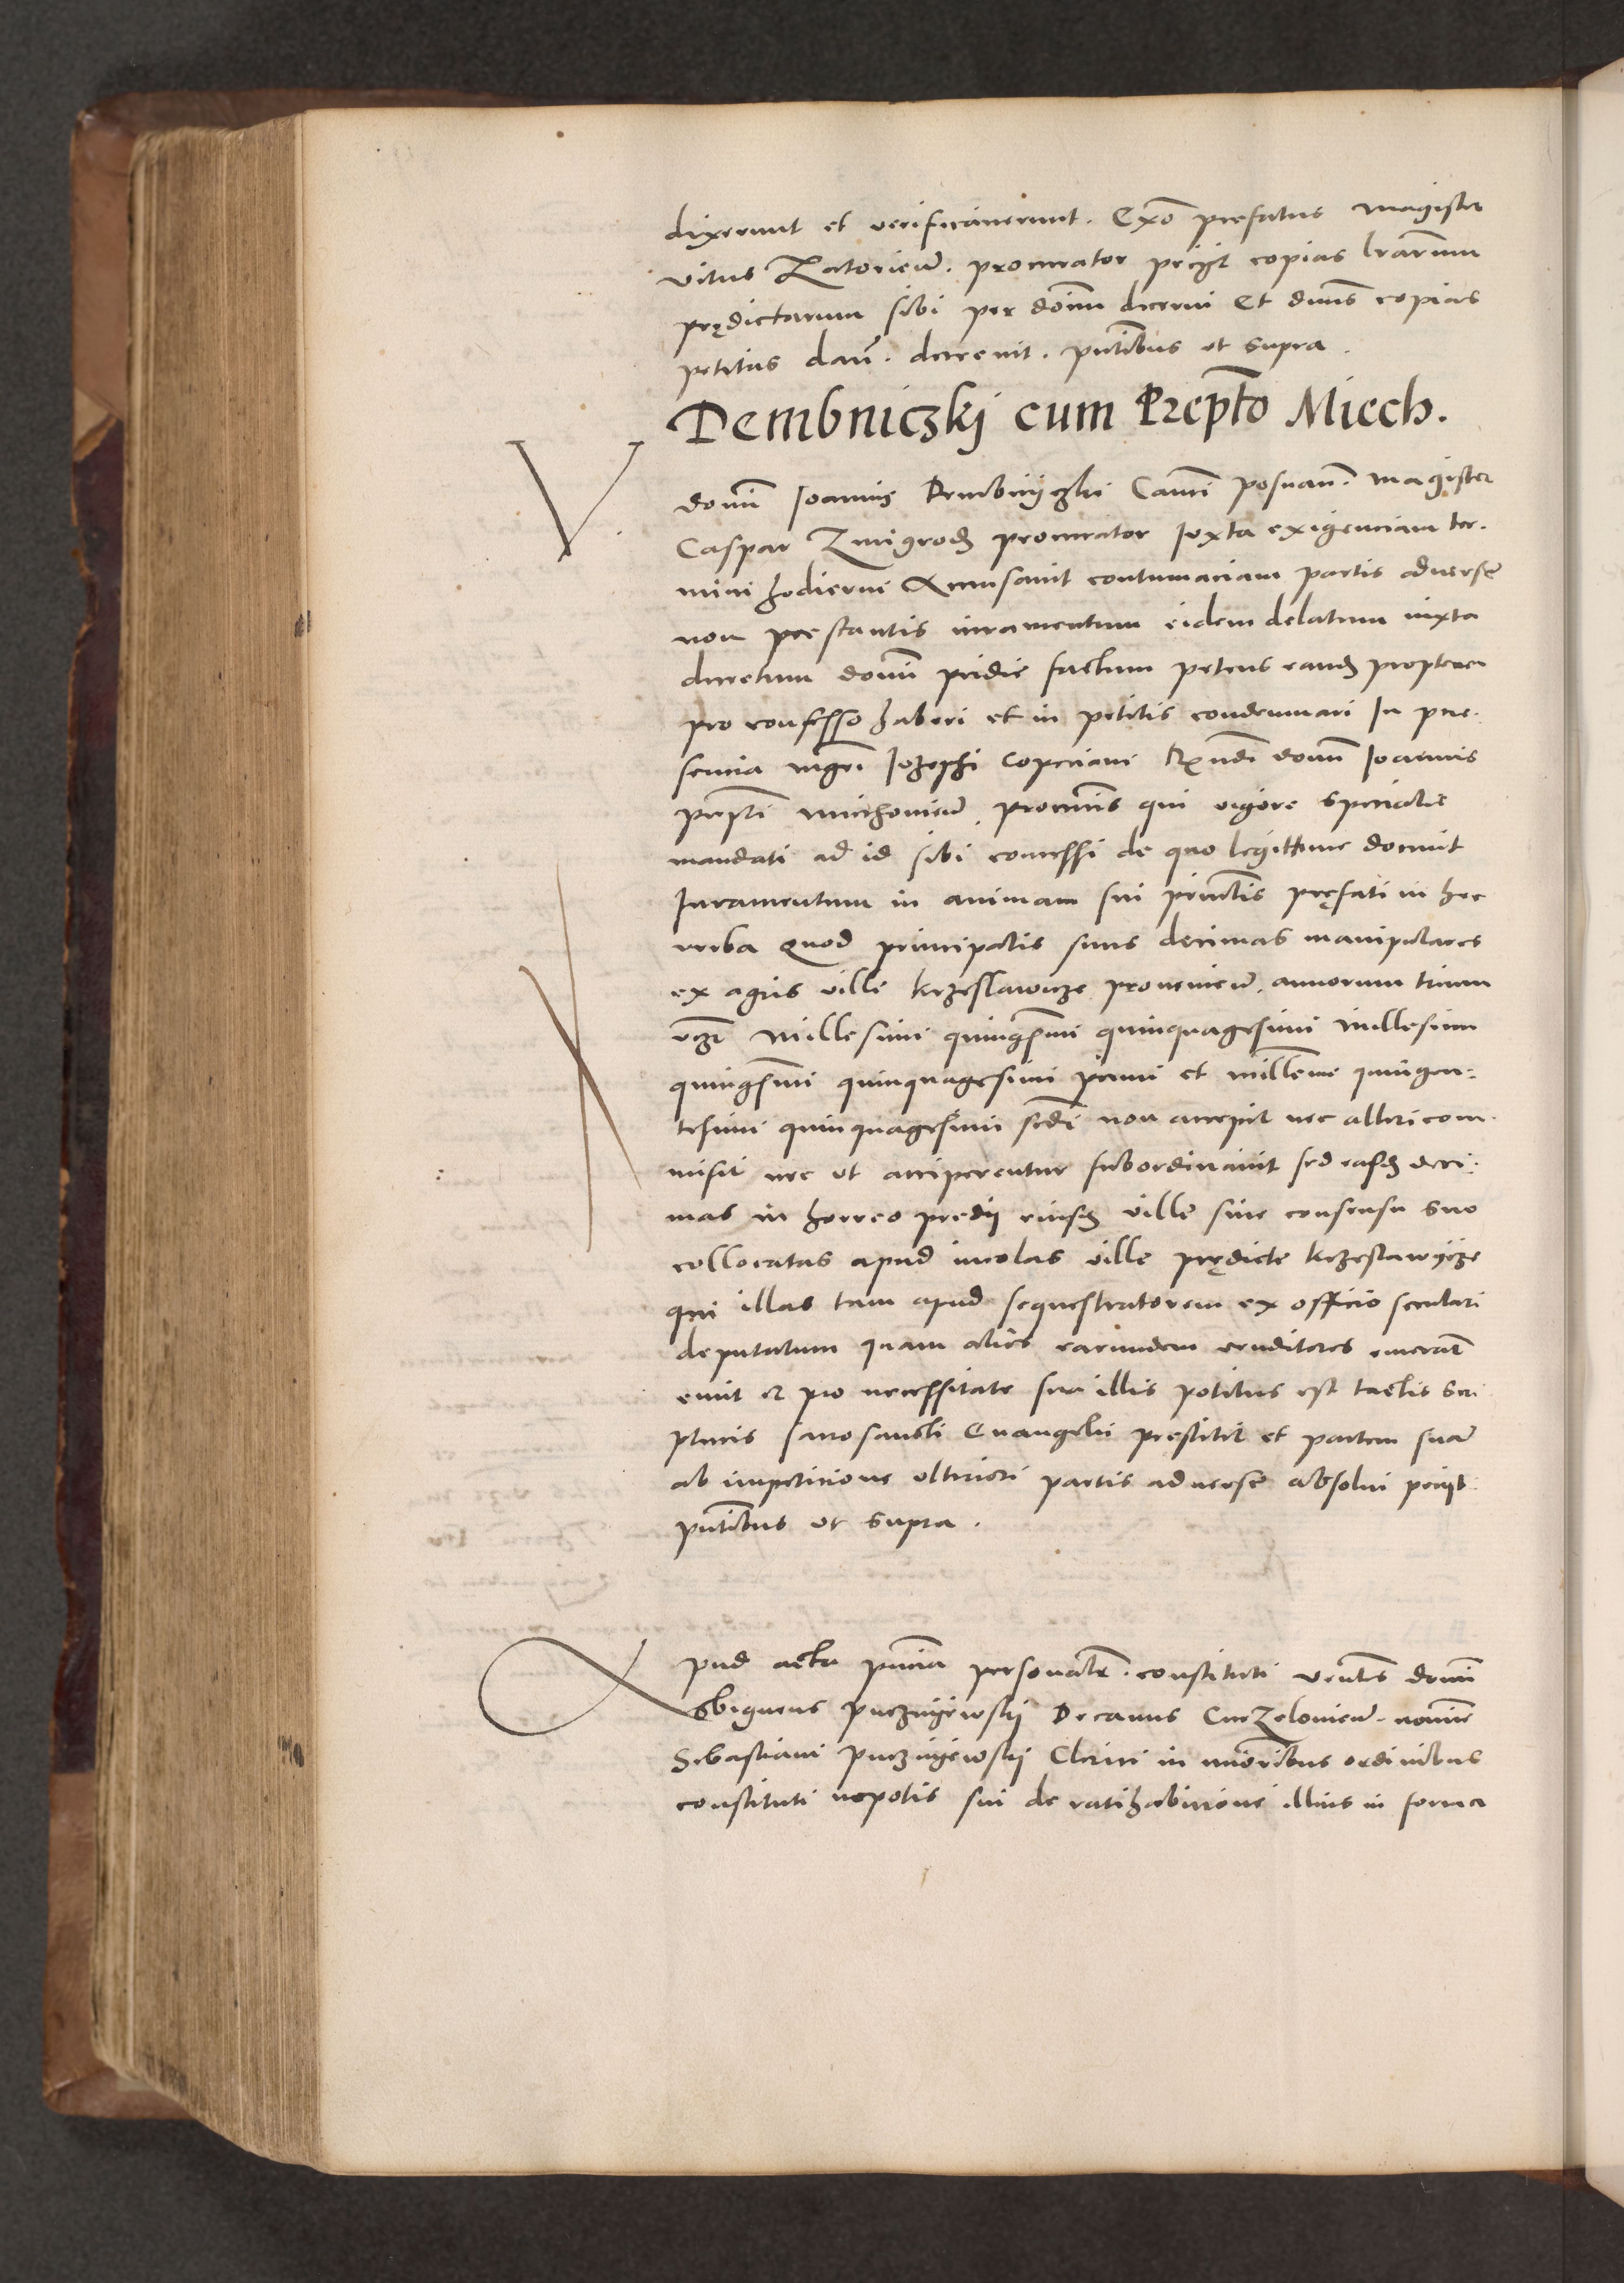 dixerunt et verificaverunt. Ex o prefatus Magister
vitus Zatoricen̄. procurator peciit copias lrarum
prędictarum sibi per dominū decerni Et dnus copias
petitas dari. decrevit. pntibus ut supra.
Dembniczkj cum Prepto Miech.
domini Joannis Dembnijczki Canci posnan. magister
Caspar Zmigrod procurator Juxta exigenciam ter.
mini hodierni Accusavit contumaciam partis adverse
non prestantis iuramentum eidem delatum iuxta
decretum domini pridie factum petens eand propterea
pro confesso haberi et in petitis condemnari In pre.
sencia mgri Jozephi Copciani Rndi domini Joannis
prepti miechovien. procuris qui vigore specialis
mandati ad id sibi concessi de quo legittime docuit
Juramentum in animam sui princlis pręfati in hec
verba Quod principalis suus decimas manipulares
ex agris ville krzeslawicze provenien. annorum trium
vczt Millesimi quingsimi quinquagesimi millesimi
quingsimi quinquagesimi primi et millesime quingen:
tesimi quinquagesimi scdi non accepit nec alteri com.
misit nec ut acciperentur subordinavit sed easd deci.
mas in horreo predij eiusd ville sine consensu suo
collocatas apud incolas ville prędicte krzeslawijcze
qui illas tam apud sequestratorem ex officio seculari
deputatum quam alios earundem venditores emerant
emit et pro necessitate sua illis potitus est tactis scri
pturis sacrosancti Evangelii prestitit et partem suam
ab impeticione ulteriori partis adverse absolvi peciit
pntibus ut supra.
Apud acta pncia personalr. constituti venles domini
Sbigneus puczniewskij Decanus Curzelovien. nomine
Sebastiani puczniewskij Clerici in minoribus ordinibus
constituti nepotis sui de ratihabicione illius in forma